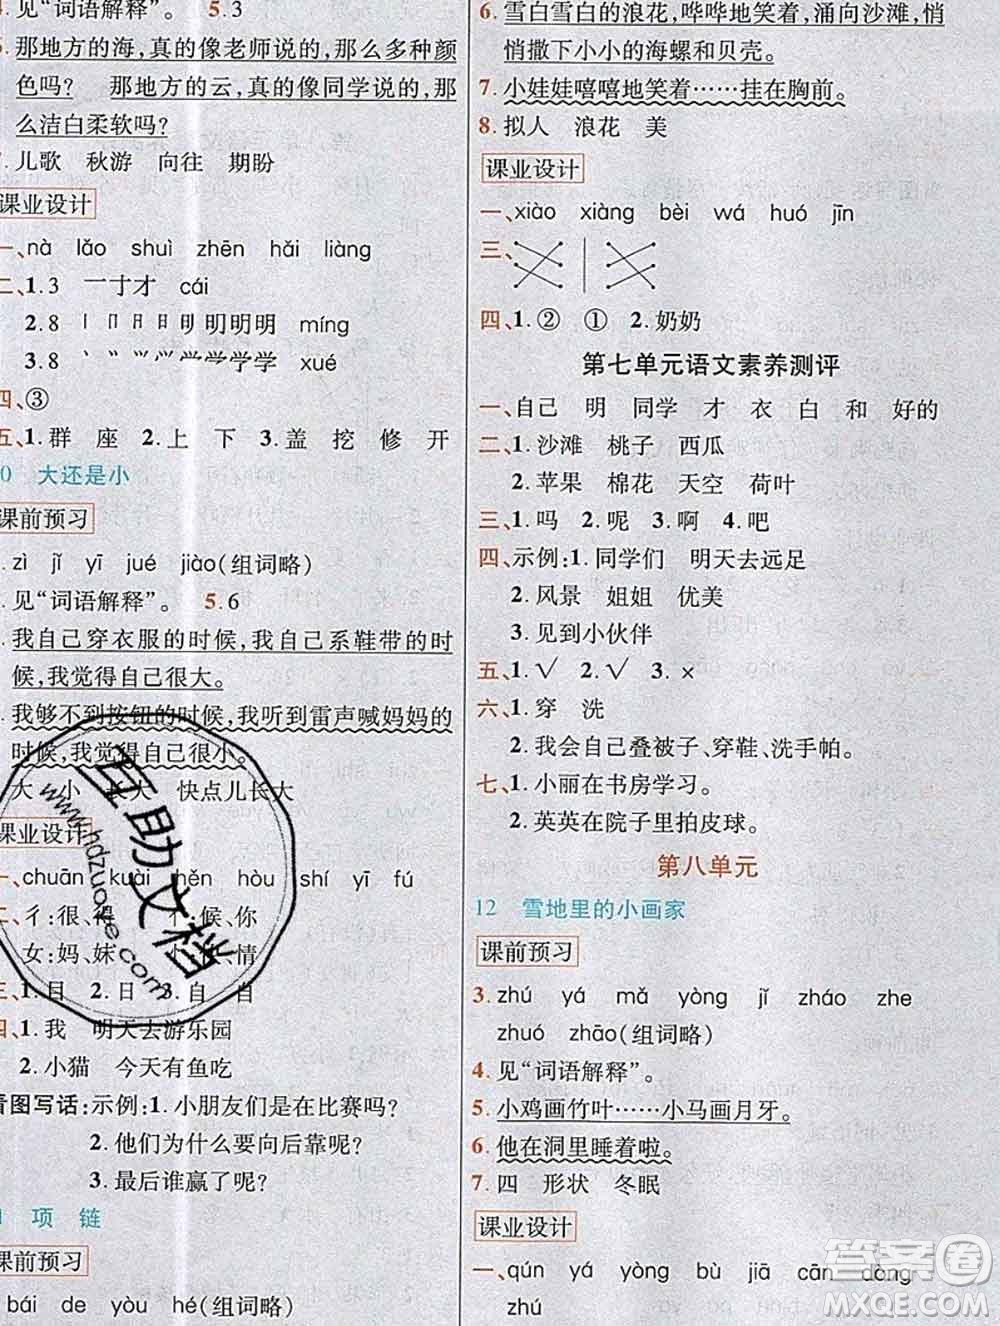 见“词语解释”。 5.3
那地方的海,真的像老师说的,那么多种颜
色吗? 那地方的云,真的像同学说的,那
么洁白柔软吗?
儿歌 秋游 向往 期盼
课业设计
一、nà lǎo shuì zhēn hǎi liàng
二、1.3 一寸才 cái
2.8 明明明 míng
3.8 学学学 xué
四、③
五、1.群 座 2.上 下 3.盖 挖 修 开
0 大还是小
课前预习
zì jǐ yī jué jiào(组词略)
见“词语解释”。 5.6
我自己穿衣服的时候,我自己系鞋带的时
候,我觉得自己很大。
我够不到按钮的时候,我听到雷声喊妈妈的
时候,我觉得自己很小。
大 小 长大 快点儿长大
课业设计
一、chuān kuài hěn hòu shí yī fú
二、彳:很、得 亻:候、你
女:妈、妹 忄:快、情
三、1.目 2.日 3.自 自
四、1.我 明天去游乐园
2.小猫 今天有鱼吃
看图写话:示例:1.小朋友们是在比赛吗?
2.他们为什么要向后靠呢?
3.最后谁赢了呢?
项 链
课前预习
bái de yòu hé(组词略)
6.雪白雪白的浪花,哗哗地笑着,涌向沙滩,悄
悄撒下小小的海螺和贝壳。
7.小娃娃嘻嘻地笑着……挂在胸前。
8.拟人 浪花 美
课业设计
一、xiào xiàng bèi wá huó jīn
三、
四、1.② ① 2.奶奶
第七单元语文素养测评
一、自己 明 同学 才 衣 白 和 好的
二、1.沙滩 桃子 西瓜
2.苹果 棉花 天空 荷叶
三、1.吗 2.呢 3.啊 4.吧
四、示例:1.同学们 明天去远足
2.风景 姐姐 优美
3.见到小伙伴
五、1.√ 2.√ 3.×
六、1.穿 洗
2.我会自己叠被子、穿鞋、洗手帕。
七、1.小丽在书房学习。
2.英英在院子里拍皮球。
第八单元
12 雪地里的小画家
课前预习
3.zhú yá mǎ yòng jǐ zháo zhe
zhuó zhāo(组词略)
4.见“词语解释”。
5.小鸡画竹叶……小马画月牙。
6.他在洞里睡着啦。
7.四 形状 冬眠
课业设计
一、qún yá yòng bù jiā cān dòng
zhú
互助文档
www.hdzuoye.com
答案圈
MXQE.COM